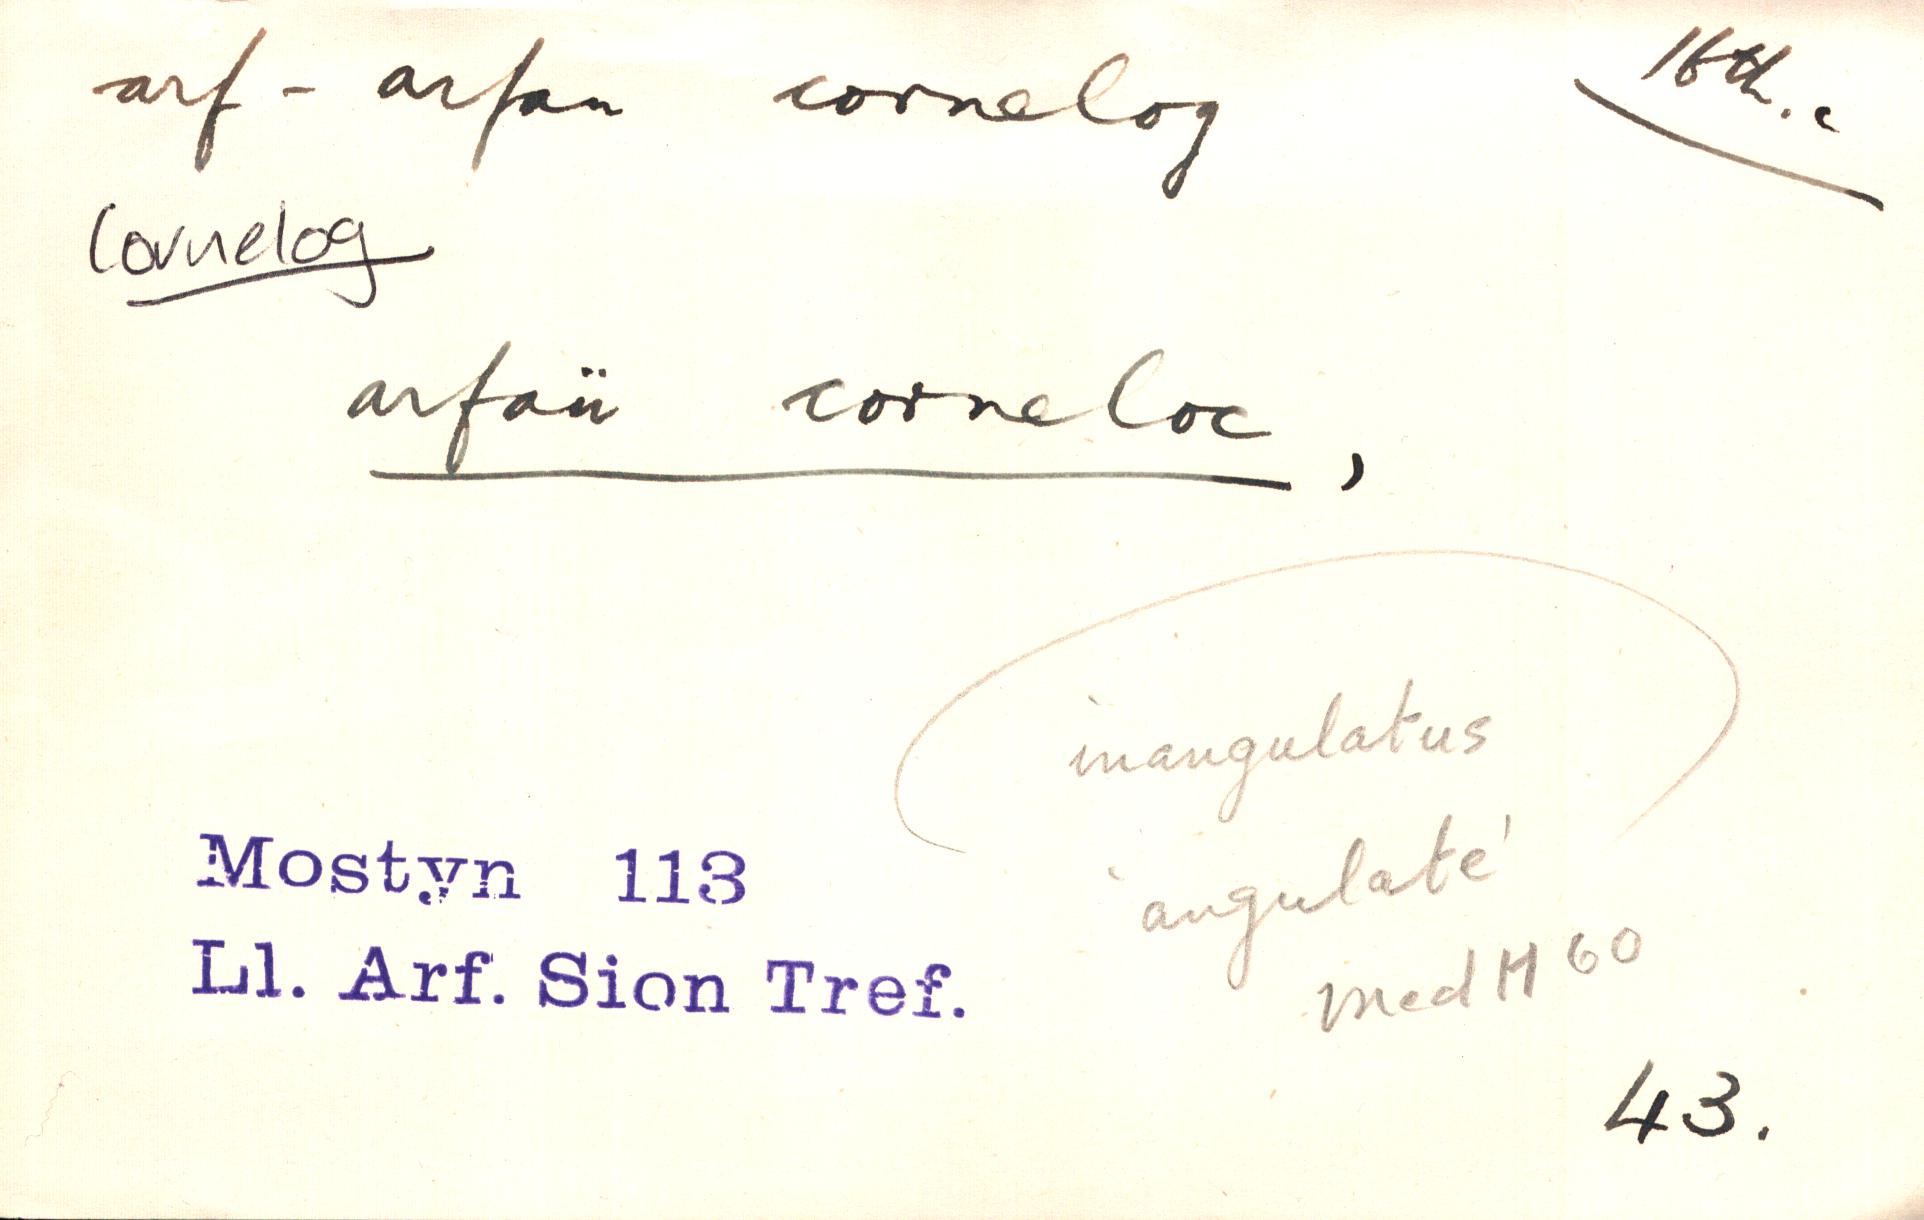 arf - arfau cornelog 16th. c
Cornelog
arfaü corneloc,
inangulatus
'angulate'
Med H 60
Mostyn 113
Ll. Arf. Sion Tref.
43.